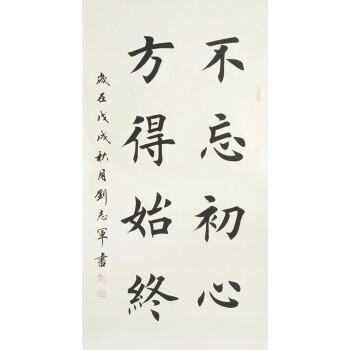 不忘初心
方得始終
歲在戊戌秋月劉志軍書